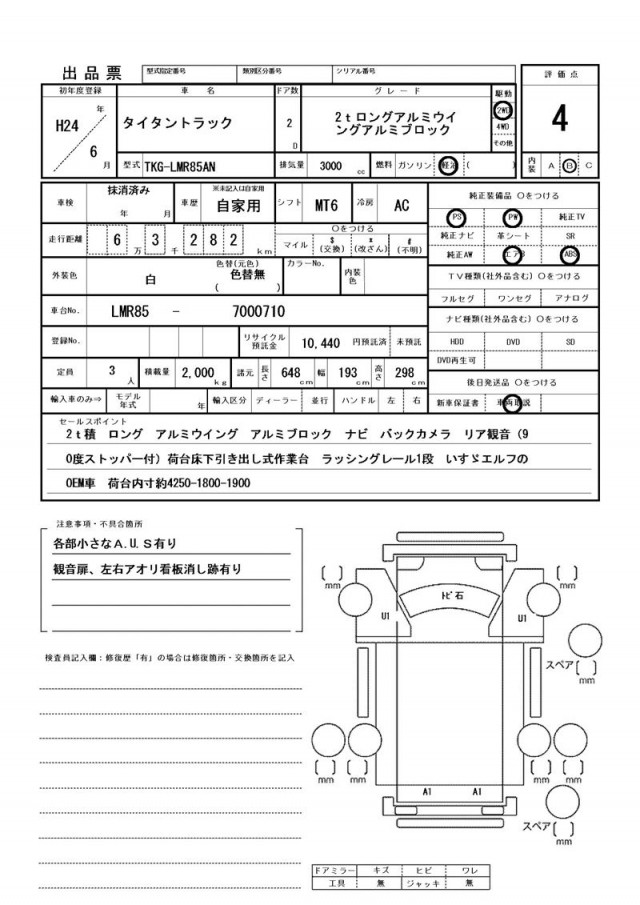 出品票 型式指定番号 類別区分番号 シリアル番号
評価点
4
初年度登録 車名 ドア数 グレード 駆動
H24 年 6 月
タイタントラック
2 D
2tロングアルミウイ
ングアルミブロック
2WD
4WD
その他
型式 TKG-LMR85AN 排気量 3000 cc 燃料 ガソリン 軽油 ( )
内装 A B C
車検 抹消済み 年 月 車歴 ※未記入は自家用 自家用 シフト MT6 冷房 AC
走行距離 6 万 3 千 2 8 2 km
○をつける
マイル $ (交換) * (改ざん) # (不明)
外装色 白 色替(元色) 色替無 ( ) カラーNo. 内装色
車台No. LMR85 - 7000710
登録No. リサイクル預託金 10,440 円預託済 未預託
定員 3 人 積載量 2,000 kg 諸元 長さ 648 cm 幅 193 cm 高さ 298 cm
輸入車のみ⇒ モデル年式 年 輸入区分 ディーラー 並行 ハンドル 左 右
純正装備品 ○をつける
PS PW 純正TV
純正ナビ 革シート SR
純正AW エアB ABS
TV種類(社外品含む) ○をつける
フルセグ ワンセグ アナログ
ナビ種類(社外品含む) ○をつける
HDD DVD SD
DVD再生可
後日発送品 ○をつける
新車保証書 車両取説
セールスポイント
2t積 ロング アルミウイング アルミブロック ナビ バックカメラ リア観音(9
0度ストッパー付)荷台床下引き出し式作業台 ラッシングレール1段 いすゞエルフの
OEM車 荷台内寸約4250-1800-1900
注意事項・不具合箇所
各部小さなA.U.S有り
観音扉、左右アオリ看板消し跡有り
検査員記入欄:修復歴「有」の場合は修復箇所・交換箇所を記入
トビ石
U1 U1
[ ] mm [ ] mm
スペア [ ] mm
[ ] mm [ ] mm [ ] mm [ ] mm
A1 A1
スペア [ ] mm
ドアミラー キズ ヒビ ワレ
工具 無 ジャッキ 無